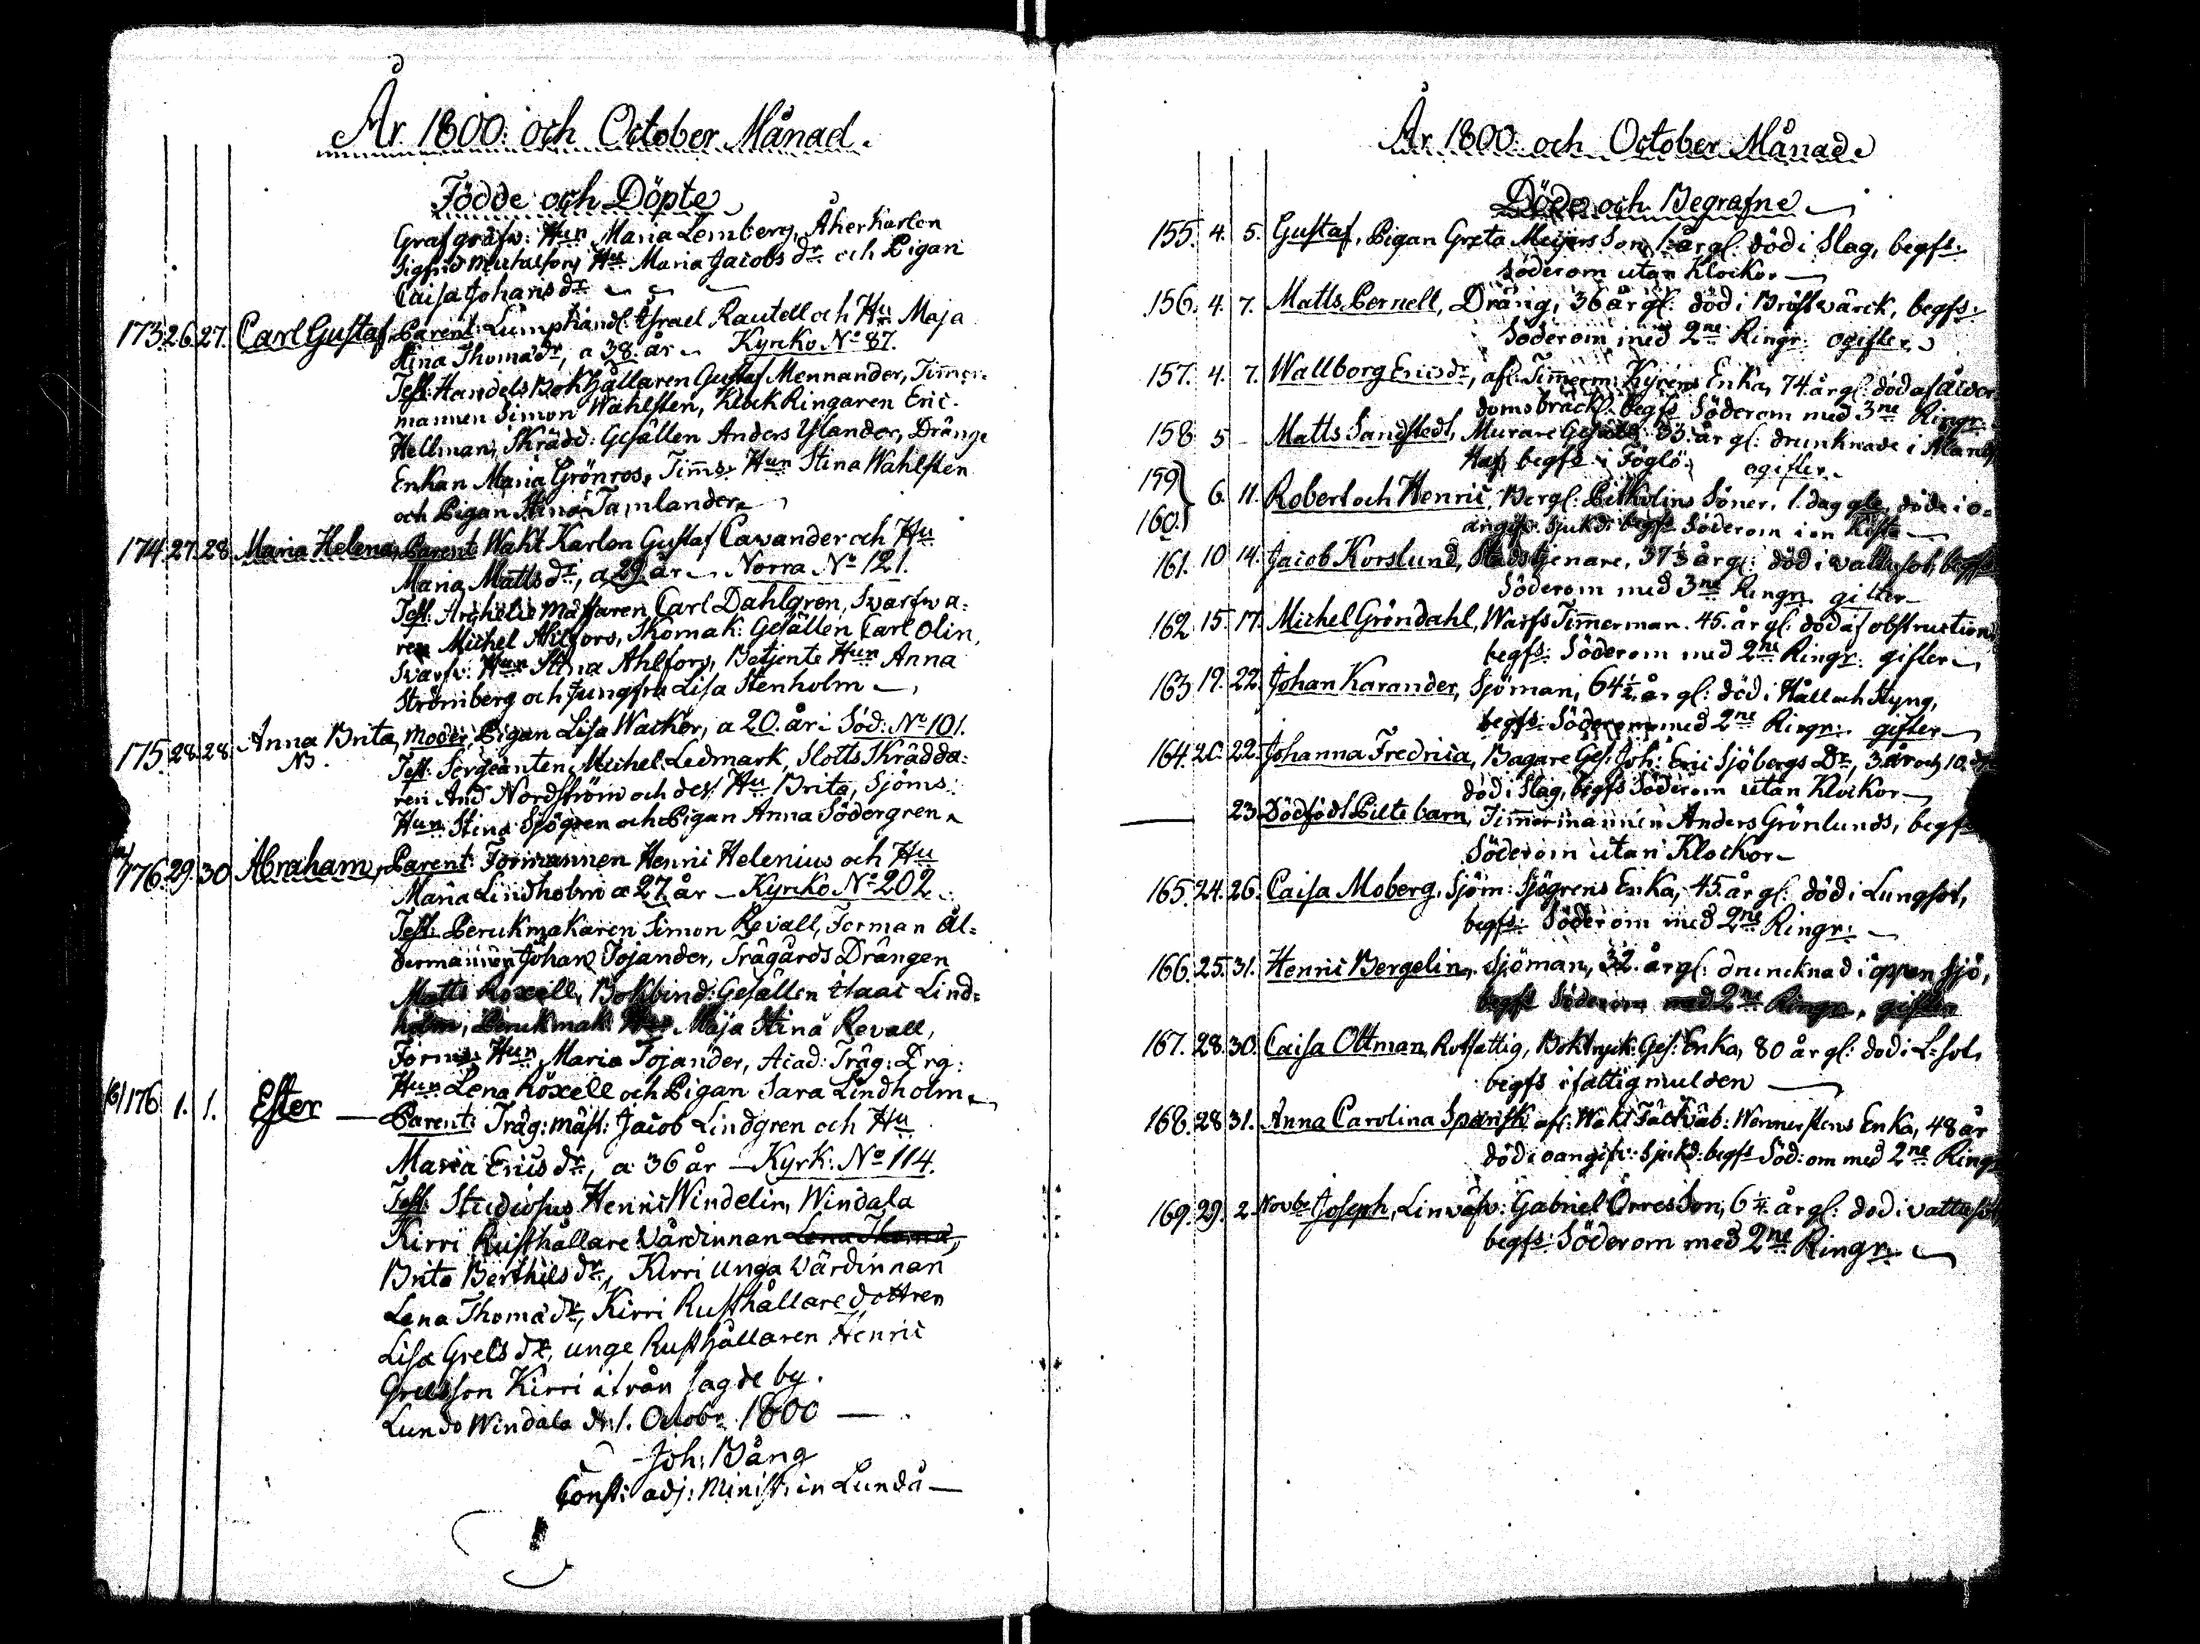 År 1800. och October Månad.
Födde och Döpte
Grafgräfv: Hun Maria Lemberg, Åkerkarlen
Sigfrid Michelson, Hu Maria Jacobs dr och Pigan
Caisa Johans dr
173. 26. 27. Carl Gustaf, Parent: Lumphandl: Israel Rautell och Hu Maja
Stina Thomæ dr, a 38. år Kyrko No 87.
Test: Handels Bokhållaren Gustaf Mennander, Timmer-
mannen Simon Wahlsten, KlockRingaren Eric
Hellman, Skrädd: Gesällen Anders Ylander, Drängs
Enkan Maria Grönros, Timms. Hun Stina Wahlsten
och Pigan Stina Tamlander
174. 27. 28. Maria Helena, Parent Wakt Karlen Gustaf Cavander och Hu
Maria Matts dr, a 29 år Norra No 121.
Test: Archelie Mästaren Carl Dahlgren, Svarfva-
ren Michel Ahlfors, Skomak: Gesällen Carl Olin,
Svarfv: Hun Stina Ahlfors, Betjente Hun Anna
Strömberg och Jungfru Lisa Stenholm
175. 28. 28. Anna Brita, Moder, Pigan Lisa Wacker, a 20. år Söd: No 101.
NB. Test: Sergeanten Michel Ledmark, Slotts Skrädda-
ren And Nordström och des Hu Brita, Sjöms:
Hun Stina Sjögren och Pigan Anna Södergren
176. 29. 30. Abraham, Parent: Formannen Henric Helenius och Hu
Maria Lindholm a 27 år Kyrko No 202
Test: Perukmakaren Simon Revall, Forman Ål-
dermannen Johan Tojander, Trägårds Drängen
Matts Roxell, Bokbind: Gesällen Isaac Lind-
holm, Perukmak: Hun Maja Stina Revall,
Forms: Hun Maria Tojander, Acad: Träg: Drg:
Hun Lena Roxell och Pigan Sara Lindholm
(b) 176 1. 1. Ester — Parent: Träg: mäst: Jacob Lindgren och Hu
Maria Erics dr, a 36 år — Kyrk: No 114.
Test: Studiosus Henric Windelin, Windala
Kirri Rusthållare Värdinnan Lena Thomæ,
Brita Berthils dr, Kirri unga Värdinnan
Lena Thomæ dr, Kirri Rusthållare dottren
Lisa Grels dr, unge Rusthållaren Henric
Grelsson Kirri ifrån sagde by.
Lundo Windala d. 1. Octobr 1800 —
Joh: Bång
Const: adj: Minist: in Lundo —
År 1800. och October Månad
Döde och Begrafne
155. 4. 5. Gustaf, Pigan Greta Meijers Son, 1. år gl: död i Slag, begfs
Söderom utan Klockor —
156. 4. 7. Matts Pernell, Dräng, 36 år gl: död i Bröstvärck, begfs.
Söderom med 2ne Ringr: ogifter
157. 4. 7. Wallborg Erics dr, afl: Timerm: Kyréns Enka, 74 år gl: död af ålder
doms bräckl: begfs Söderom med 3ne Ringr:
158 5 - Matts Sandstedt, Murare Gesäll, 33. år gl: drunknade i Ålands
Haf, begfs i Föglö, ogifter
159
160. 6. 11. Robert och Henric, Bergl: Söner, 1. dag gle, döde i o-
angifv: Sjukd: begfs Söderom i en Kista
161. 10 14. Jacob Korslund, Stadstjenare, 37 1/3 år gl: död i vattusot, begfs
Söderom med 3ne Ringr gifter
162 15. 17. Michel Gröndahl, Warfs Timmerman. 45. år gl: död af obstruction
begfs: Söderom med 2ne Ringr: gifter
163 19. 22. Johan Karander, Sjöman, 64 1/2 år gl: död i Håll och Styng,
begfs: Söderom med 2ne Ringr: gifter
164. 20. 22. Johanna Fredrica, Bagare Ges: Joh: Eric Sjöbergs Dr, 3 år och 10
död i Slag, begfs Söderom utan Klockor
— 23. Dödfödt Pilte barn, Timmermannen Anders Grönlunds, begfs
Söderom utan Klockor
165. 24. 26. Caisa Moberg, Sjöm: Sjögrens Enka, 45. år gl: död i Lungsot,
begfs: Söderom med 2ne Ringr:
166. 25. 31. Henric Bergelin, Sjöman, 32. år gl: druncknad i öppen Sjö,
begfs Söderom med 2ne Ringr, gifter
167. 28. 30. Caisa Oltman, Rotfattig, Boktryck: Ges: Enka, 80 år gl: död i L: sot,
begfs i fattigmulden —
168. 28 31. Anna Carolina Spansk, afl: Wakt Wennerstens Enka, 48 år
död i oangifv: sjukd: begfs Söd: om med 2ne Ringr
169. 29. 2. Novbr Joseph, Linväfv: Gabriel Orres Son, 6 1/4 år gl: död i vattusot
begfs: Söderom med 2ne Ringr: